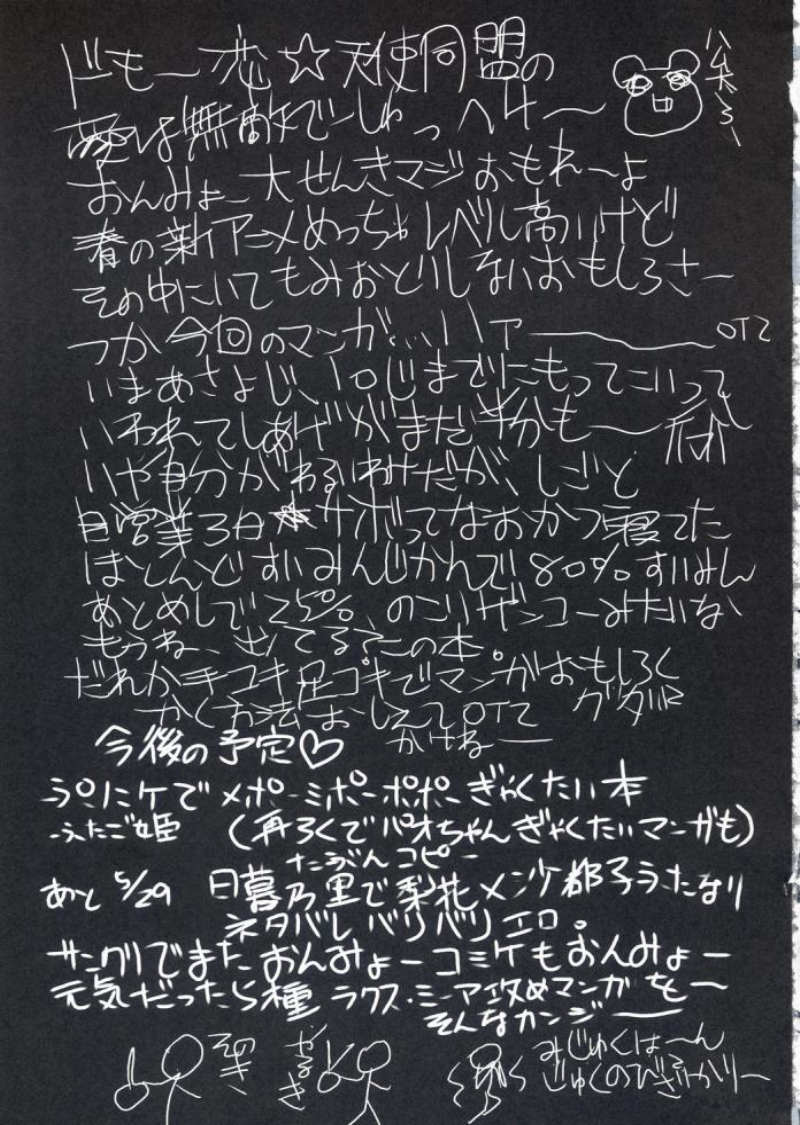 ドもー恋☆天使同盟の
愛は無敵でーしゅっ へけ〜
おんみょー大せんきマジおもれーよ
春の新アニメめっちゃレベル高いけど
その中にいてもみおとりしないおもしろさー
つか今回のマンガ、、、ハァーーー OTZ
いまあさよじ、10じまでにもってこいって
いわれてしあげがまだ半分も〜
いや自分がわるいわけだが、しごと
自営業3日 サボってなおかつ寝てた
ほとんどすいみんじかんで80%すいみん
あとめしで25%、のこりザンコーみたいな
もうね、出てる?この本。
だれか手コキ足コキでマンガおもしろく
かく方法おしえてOTZ
かけねーー
今後の予定♡
ぷにケでメポーミポーポポーぎゃくたい本
ふたご姫 (再ろくでパオちゃんぎゃくたいマンガも)
たぶんコピー
あと5/29 日暮乃里で梨花メンケ都子うたなり
ネタバレバリバリエロ。
サンクリでまたおんみょーコミケもおんみょー
元気だったら種 ラクス・ミーア攻めマンガを〜
そんなカンジーー
やるき
みじゅくはーん
じゅくのびざかりー